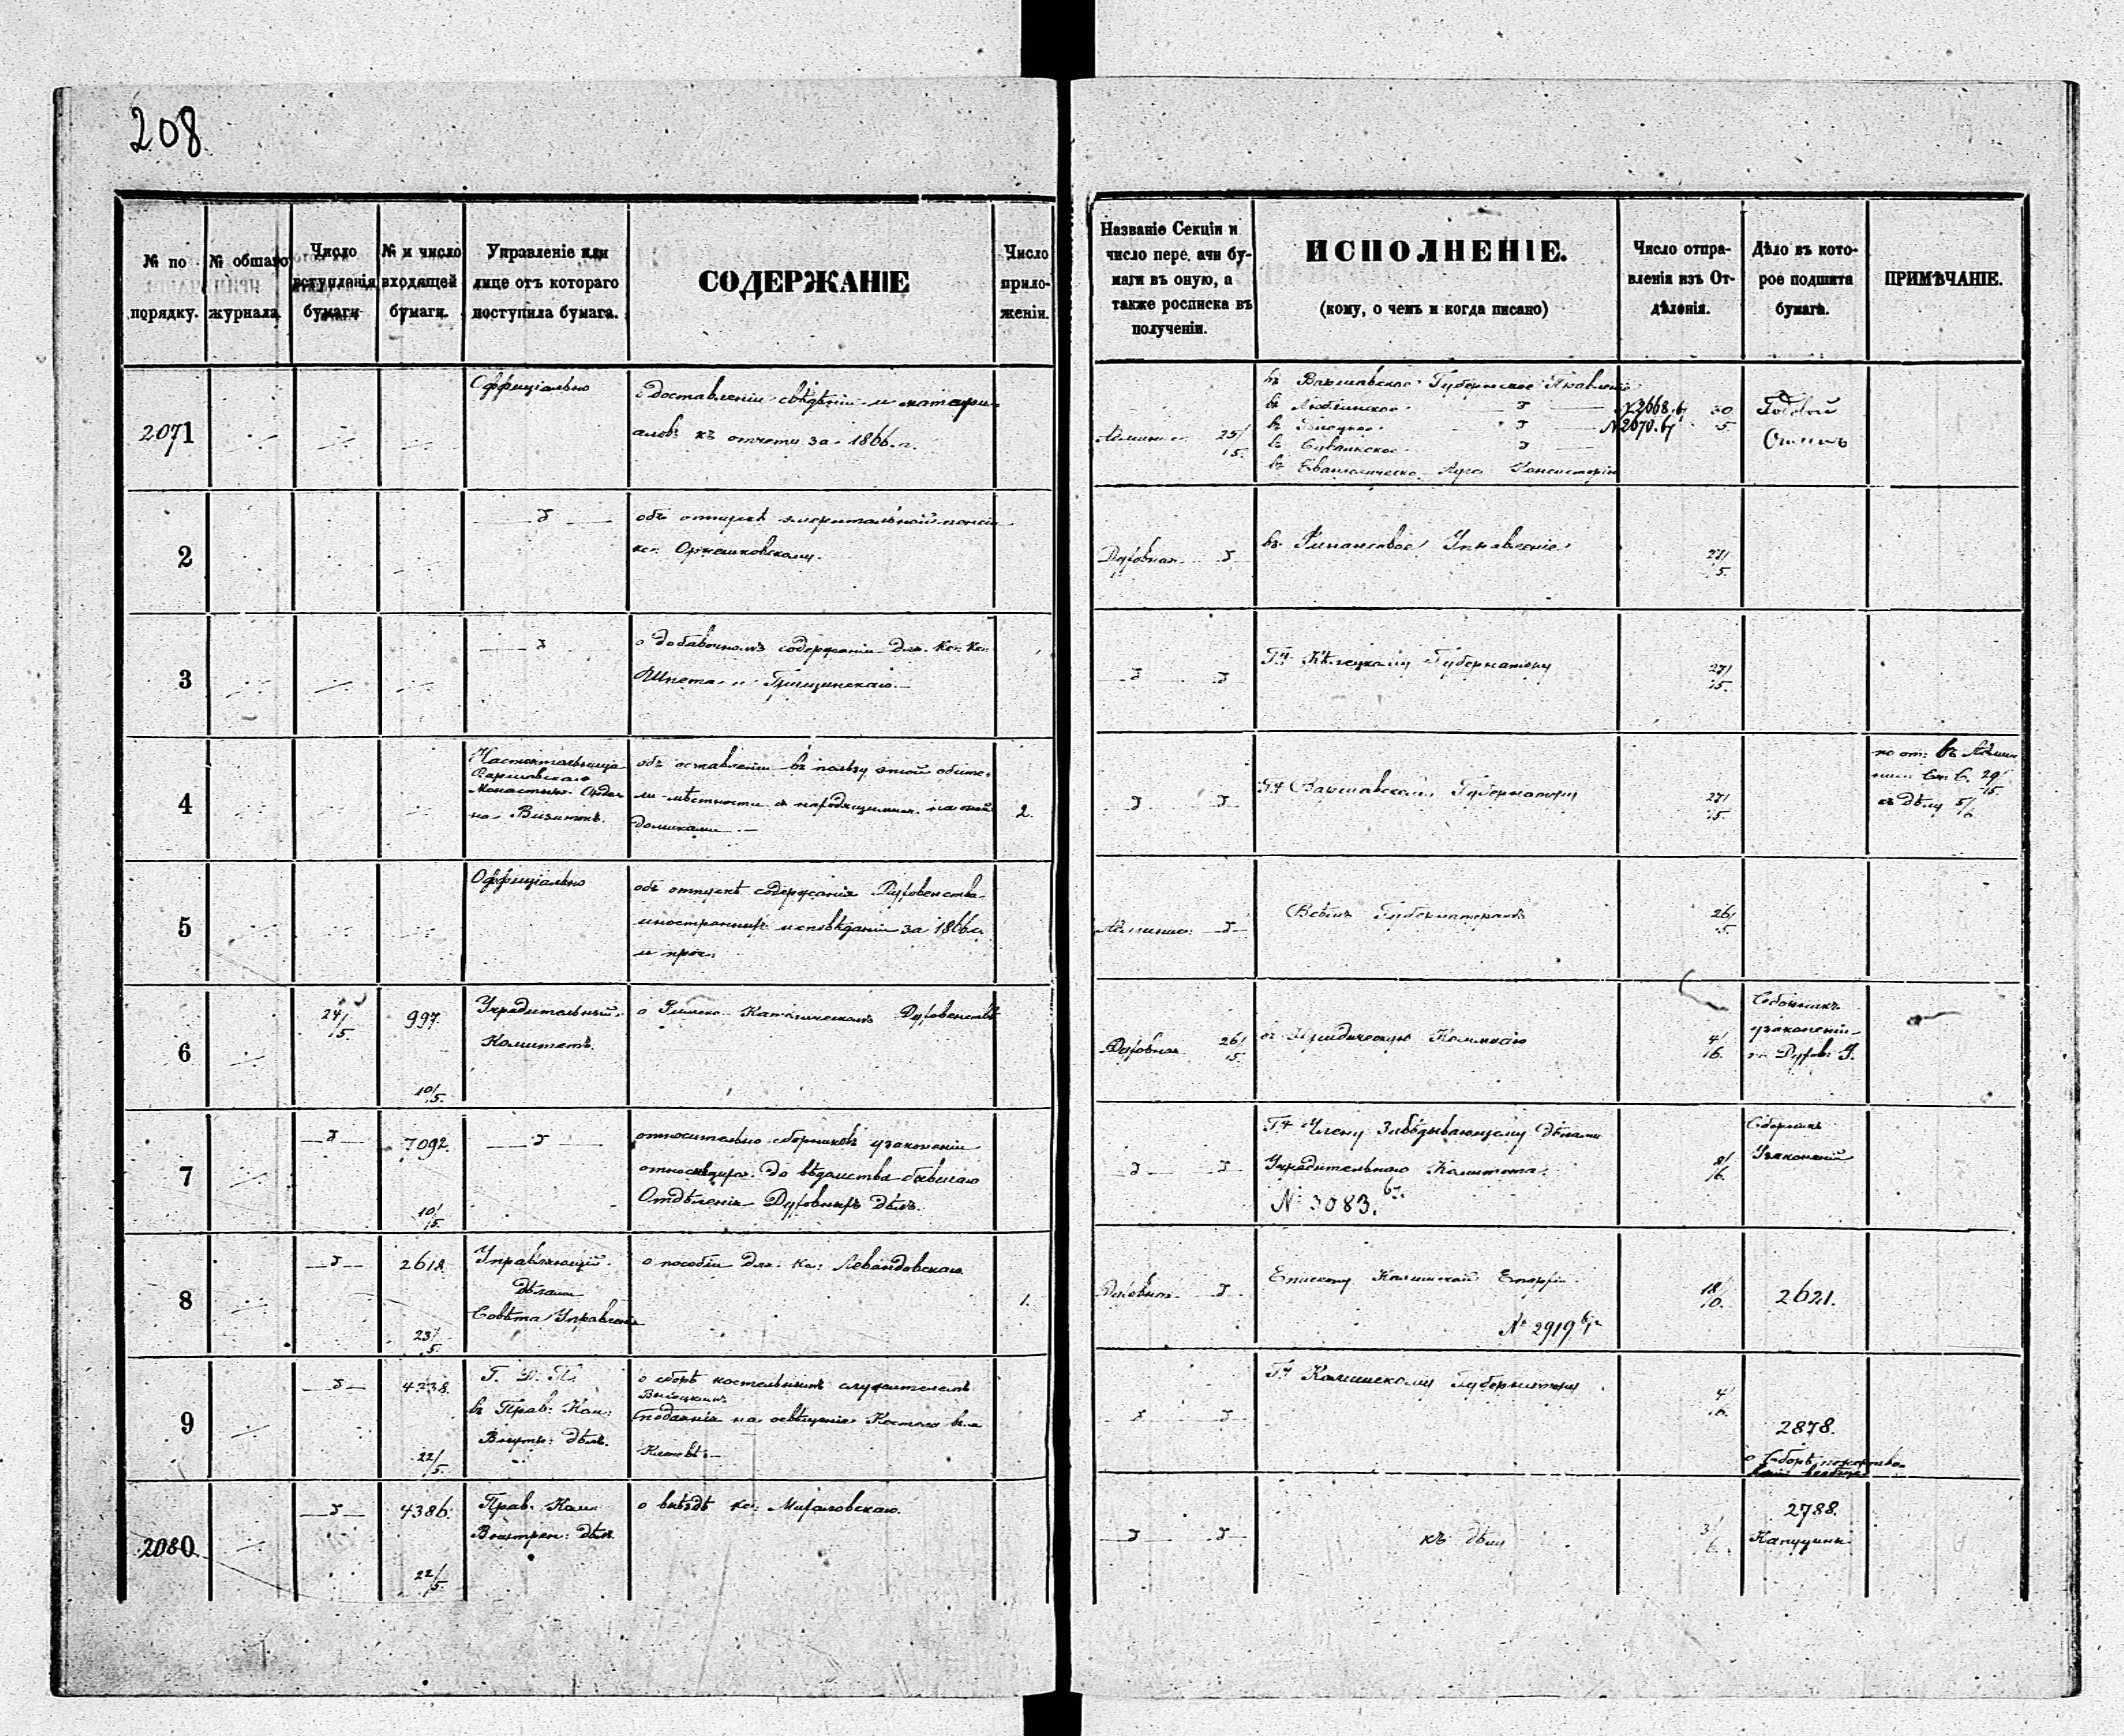 208
№ по порядку.
№ общаго журнала
Число вступленія бумаги
№ и число входящей бумаги.
Управленіе или лице отъ котораго поступила бумага.
СОДЕРЖАНІЕ
Число приложеніи.
Названіе Секціи и число пере, ачи бумаги въ оную, а также росписка въ полученіи.
ИСПОЛНЕНІЕ.
(кому, о чемъ и когда писано)
Число отправленія изъ Отдѣленія.
Дѣло въ которое подшита бумага.
ПРИМѢЧАНІЕ.
2071
Оффиціально
о доставленіи свѣдѣній и матери-
аловъ къ отчету за 1866 г.
25/5.
въ Варшавское Губернское Правленіе
въ Люблинское
въ Плоцкое
въ Сувалкское
въ Евангелическо Аугс Консисторію
№ 2668
№ 2670
Годовой
Отчетъ
2
объ отпускѣ эмеритальной пенсіи
кс. Оржешковскому.
Духовная
въ Финансовое Управленіе
27/5.
3
о добавочномъ содержаніи для кс. кс.
Шпета и
Гч Кѣлецкому Губернатору
27/5.
4
Настоятельница
Варшавскаго
Монастыря Орде
на Визитокъ.
объ оставленіи въ пользу этой обите-
ли мѣстности съ находящимися на оной
домиками.
2.
Гч Варшавскому Губернатору
27/5.
къ дѣлу 5/6
5
Оффиціально
объ отпускѣ содержанія Духовенства
иностранныхъ исповѣданій за 1866 г.
и проч.
Всѣмъ Губернаторамъ
26/5.
6
24/5.
997.
10/5.
Учредительный
Комитетъ.
о Римско Католическомъ Духовенствѣ
Духовная 26/5.
въ Юридическую Коммисію
4/6.
Сборникъ
узаконеній
по Духов. У.
7
7092.
10/5.
относительно сборниковъ узаконеній
относящихся до вѣдомства бывшаго
Отдѣленія Духовныхъ Дѣлъ.
Гч Члену Завѣдывающему дѣлами
Учредительнаго Комитета.
№ 3083.
8/6.
Сборникъ
Узаконеній
8
2618
23/5.
Управляющій
дѣлами
Совѣта Управленія
о пособіи для кс. Левандовскаго
1.
Духовная
Епископу Калишской Епархіи
№ 2919
18/10.
2621.
9
4238.
22/5.
Г. Д. Пр.
въ Прав. Ком.
Внутр. дѣлъ.
о сборѣ костельнымъ служителемъ
Высоцкимъ
подаянія на освѣщеніе Костела въ
Гч Калишскому Губернатору
4/6.
2878.
о Сборѣ пожертво-
ваній вообще
2080.
4386.
22/5.
Прав. Ком.
Внутрен. дѣлъ
о выѣздѣ кс. Михаловскаго.
къ дѣлу
3/6.
2788.
Капуцины